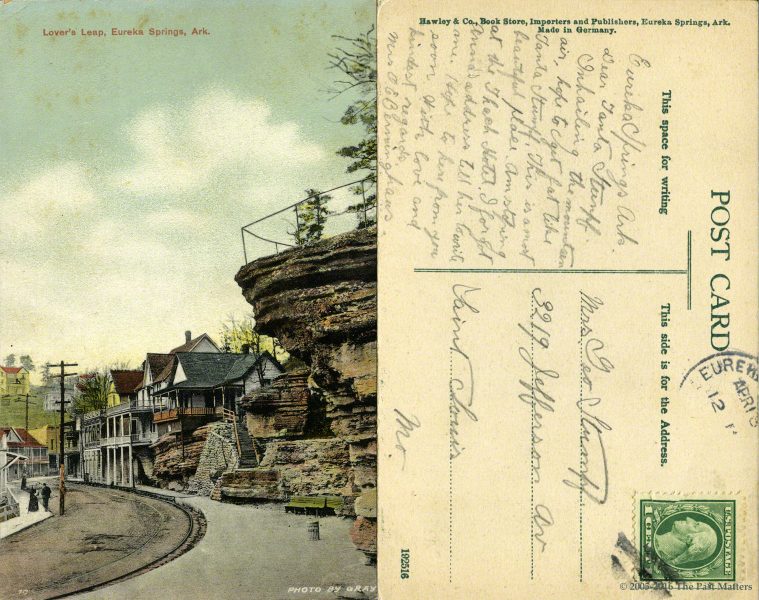 Lover's Leap, Eureka Springs, Ark.
10
PHOTO BY GRAY
Hawley & Co., Book Store, Importers and Publishers, Eureka Springs, Ark.
Made in Germany.
This space for writing
Eureka Springs Ark.
Dear Tanta Stumpf.
Inhailing the mountain
air, hope to get fat like
Tanta Stumpf. This is a most
beautiful place. Am stoping
at the Thach Hotel. I forgot
address tell her to write
me. Hope to hear from you
soon. With love and
kindest regards.
Mrs
POST CARD
This side is for the Address.
Mrs Geo Stumpf
3219 Jefferson Av
Saint Louis
Mo
EUREK
APR
12
192516
U.S. POSTAGE
1 CENT 1
© 2005-2016 The Past Matters